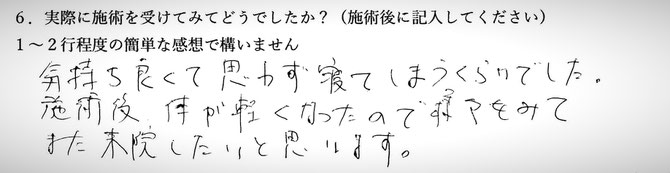 6．実際に施術を受けてみてどうでしたか？（施術後に記入してください）
1～2行程度の簡単な感想で構いません
気持ち良くて思わず寝てしまうくらいでした。
施術後、体が軽くなったので様子をみて
また来院したいと思います。